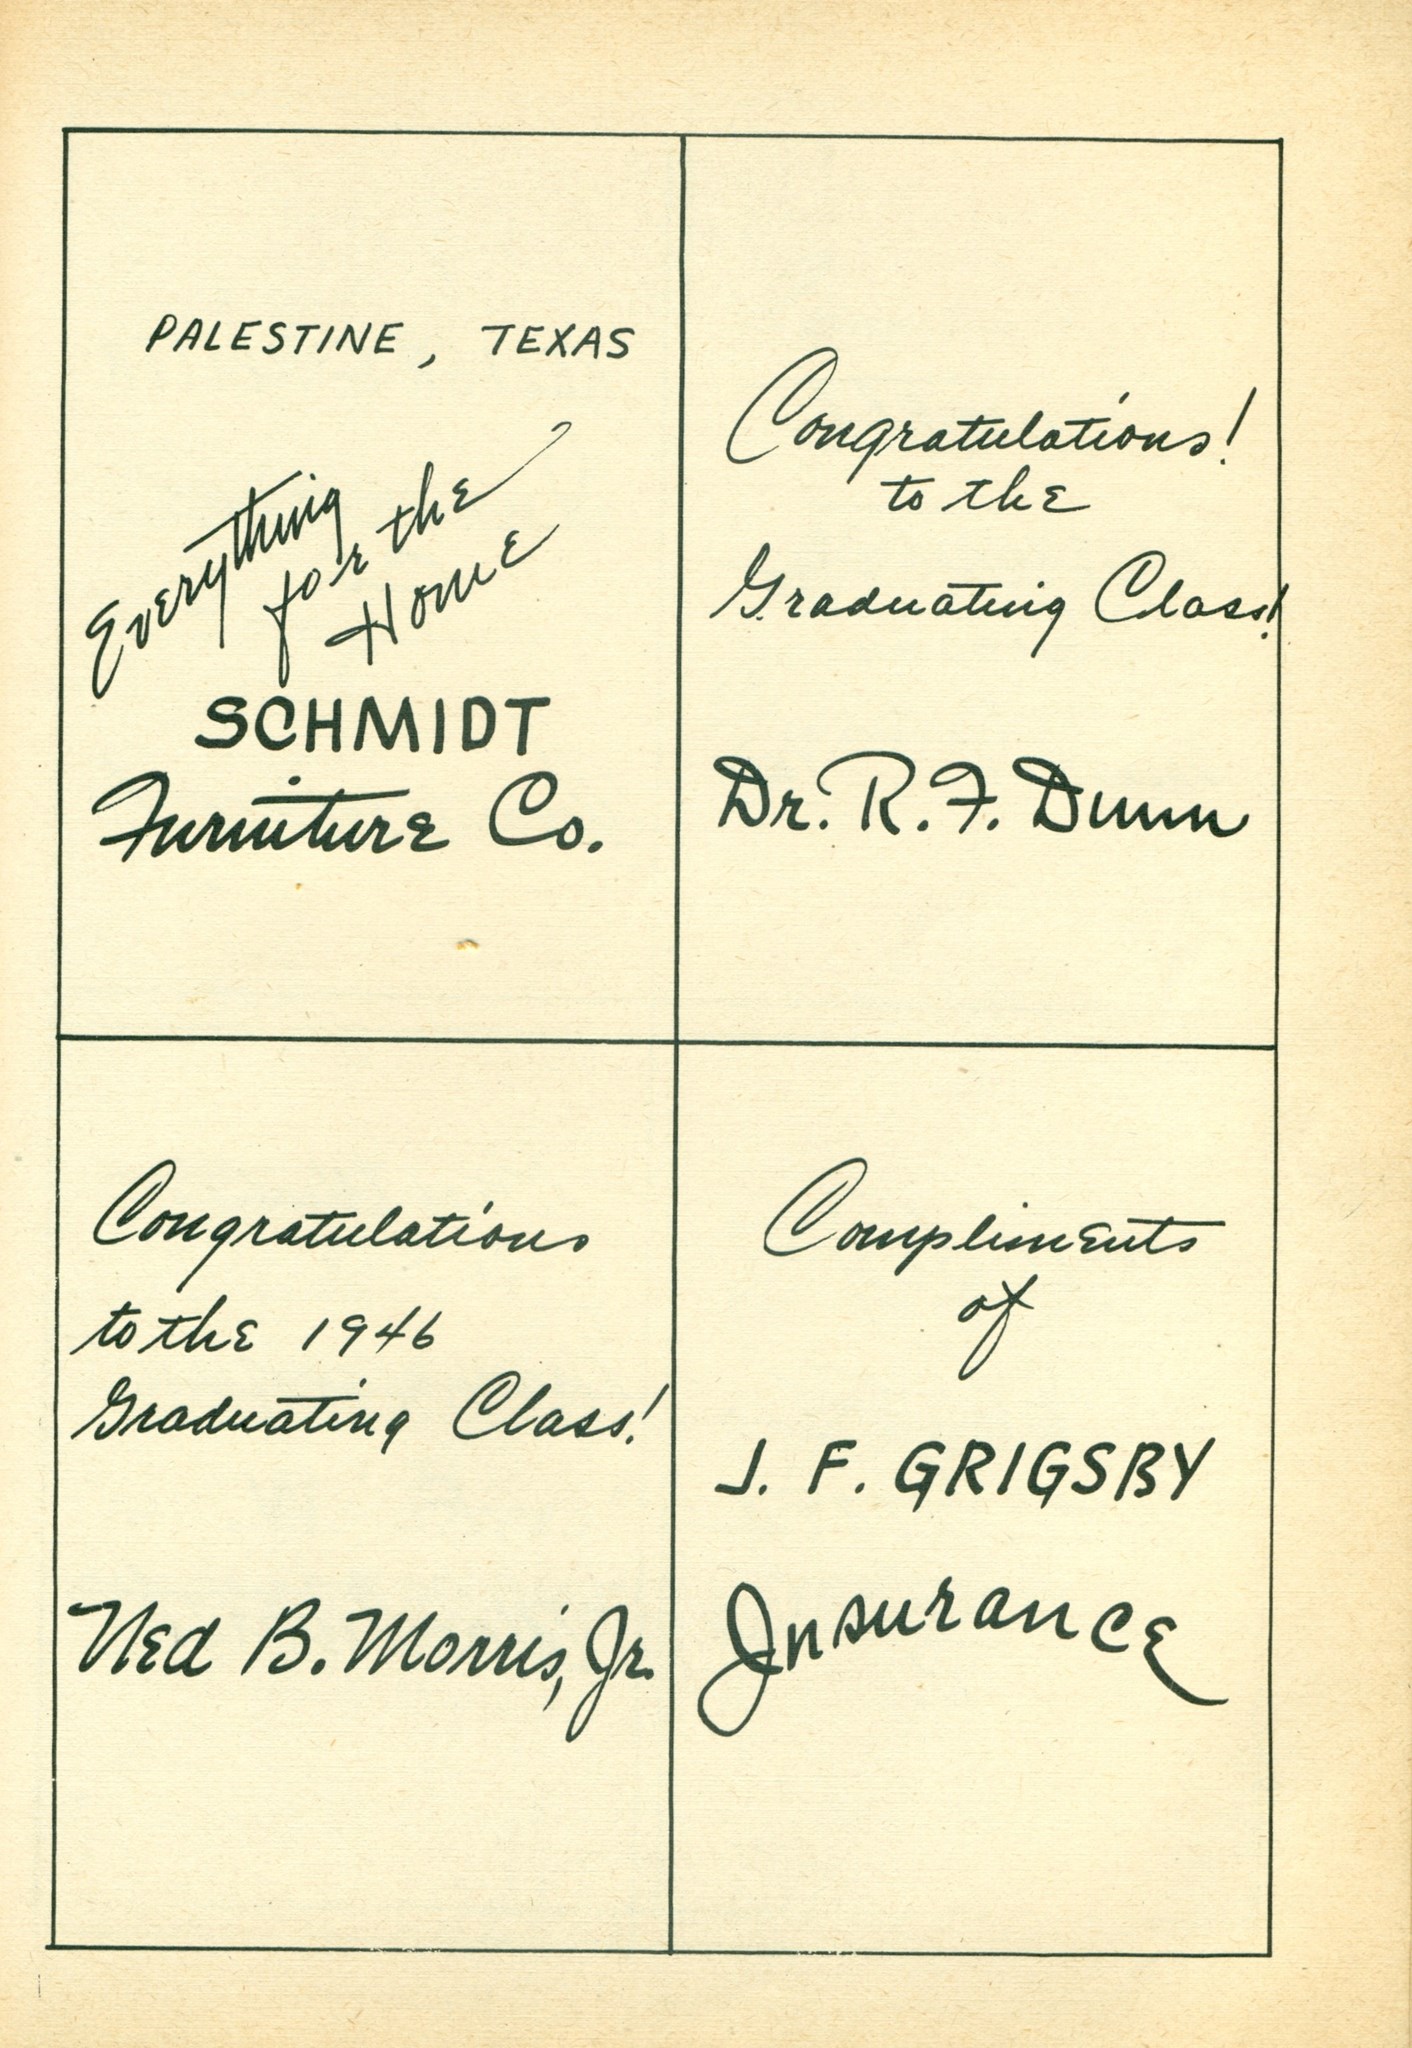 PALESTINE, TEXAS
Everything
for the
Home
SCHMIDT
Furniture Co.
Congratulations!
to the
Graduating Class!
Dr. R. F. Dunn
Congratulations
to the 1946
Graduating Class!
Ned B. Morris, Jr.
Compliments
of
J. F. GRIGSBY
Insurance